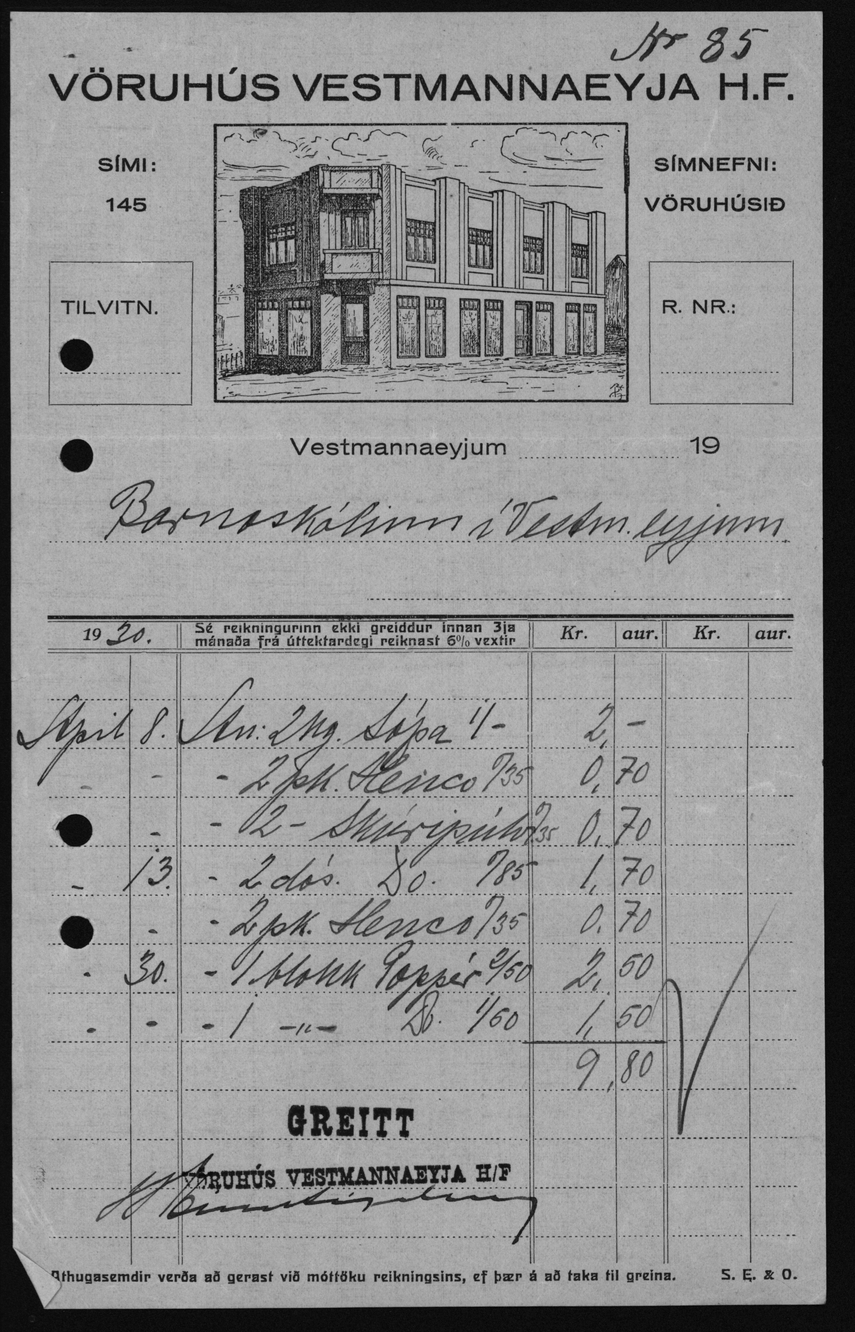 Nr 85
VÖRUHÚS VESTMANNAEYJA H.F.
SÍMI:
145
SÍMNEFNI:
VÖRUHÚSIÐ
TILVITN.
R. NR.:
Vestmannaeyjum 19
Barnaskólinn í Vestm.eyjum.
1930. Sé reikningurinn ekki greiddur innan 3ja mánaða frá úttektardegi reiknast 6% vextir Kr. aur. Kr. aur.
Apíl 8. An: 2 kg. Sápa 1/- 2,-
- - - 2 pk. Henco 0/35 0,70
- - 2 - Skúripúlv. 0/35 0,70
- 13. - 2 dós. Do. 0/85 1,70
- - 2 pk. Henco 0/35 0,70
- 30. - 1 blokk Pappír 2/50 2,50
- - - 1 -"- Do. 1/50 1,50
9,80
GREITT
VÖRUHÚS VESTMANNAEYJA H/F
Athugasemdir verða að gerast við móttöku reikningsins, ef þær á að taka til greina. S. E. & O.